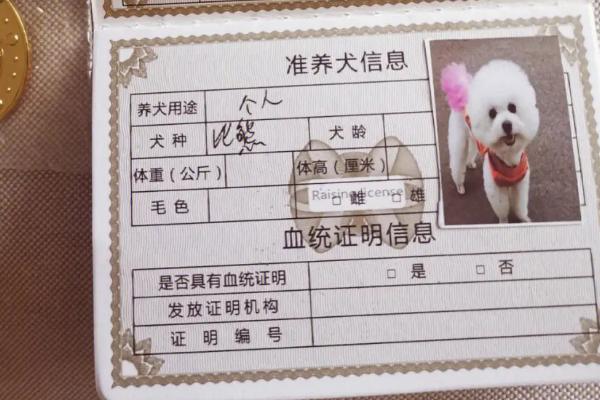 准养犬信息
养犬用途 个人
犬种 比熊 犬龄
体重（公斤） 体高（厘米）
Raising license
毛色 □ 雌 □ 雄
血统证明信息
是否具有血统证明 □ 是 □ 否
发放证明机构
证明编号